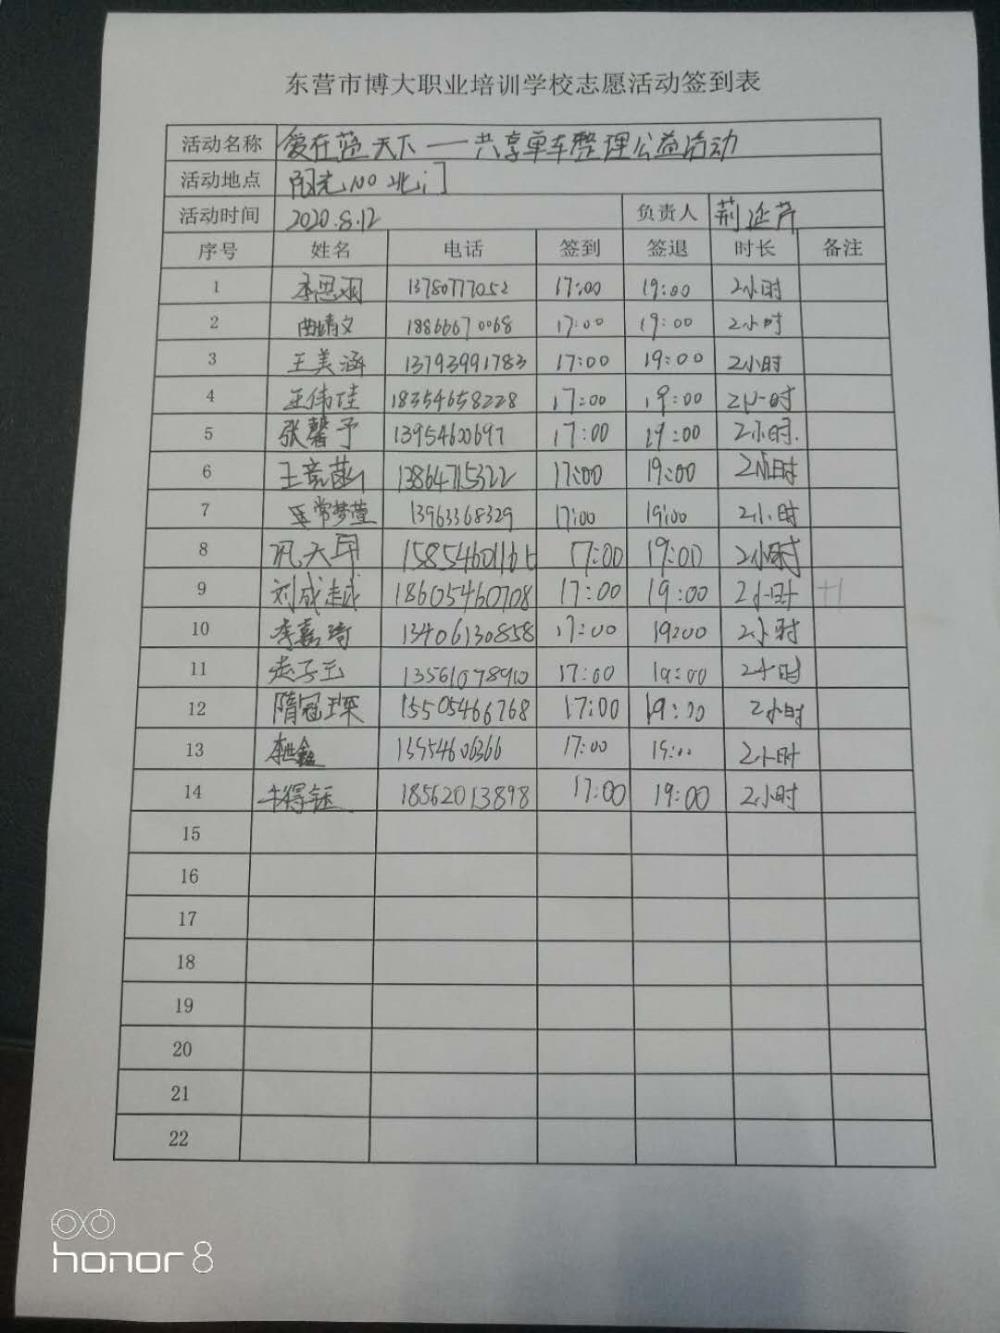 东营市博大职业培训学校志愿活动签到表
活动名称 爱在蓝天下——共享单车整理公益活动
活动地点 阳光100北门
活动时间 2020.8.12 负责人 荆延芹
序号 姓名 电话 签到 签退 时长 备注
1 李思羽 13780777052 17:00 19:00 2小时
2 曲靖文 18866670068 17:00 19:00 2小时
3 王美涵 13793991783 17:00 19:00 2小时
4 王伟佳 18354658228 17:00 19:00 2小时
5 张馨予 13954620697 17:00 19:00 2小时.
6 13864715322 17:00 19:00 2小时
7 常梦萱 13963368329 17:00 19:00 2小时
8 17:00 19:00 2小时
9 刘成越 18605460708 17:00 19:00 2小时 +1
10 李嘉琦 13406130858 17:00 19:00 2小时
11 赵子玉 13561078910 17:00 19:00 2小时
12 隋冠琛 15505466768 17:00 19:00 2小时
13 李世鑫 13954606366 17:00 19:00 2小时
14 牛得钰 18562013898 17:00 19:00 2小时
15
16
17
18
19
20
21
22
honor 8